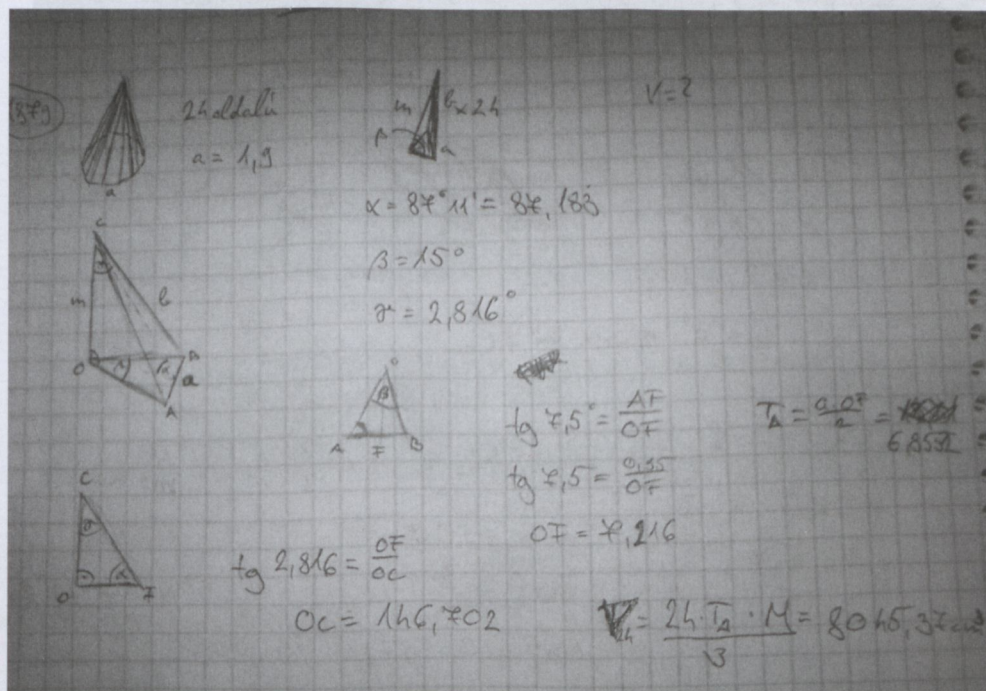 24 oldalú
a = 1,9
a
m
b
x24
β
a
V=?
α = 87°11' = 87,183
β = 15°
γ = 2,816°
C
m
b
O
B
a
A
O
β
A
F
B
tg 7,5° = AF/OF
tg 7,5 = 0,95/OF
OF = 7,216
T_Δ = a·OF/2 =
6,8552
C
γ
α
O
F
tg 2,816 = OF/OC
OC = 146,702
V_24 = 24·T_Δ·M/3 = 8045,37 cm³